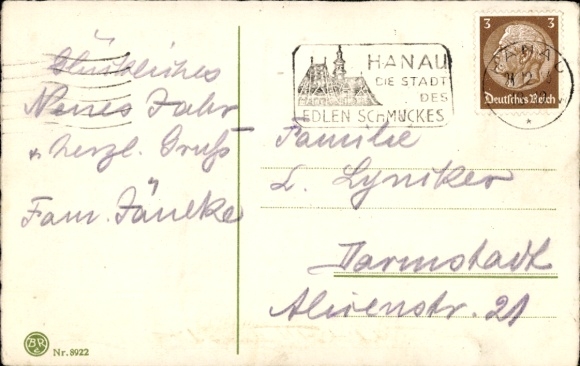 Glückliches
Neues Jahr
& herzl. Gruß
Fam. Jänecke
BR
Nr. 8922
HANAU
DIE STADT
DES
EDLEN SCHMUCKES
3 3
Deutsches Reich
HANAU
Familie
L. Lyniker
Darmstadt
Alicenstr. 21